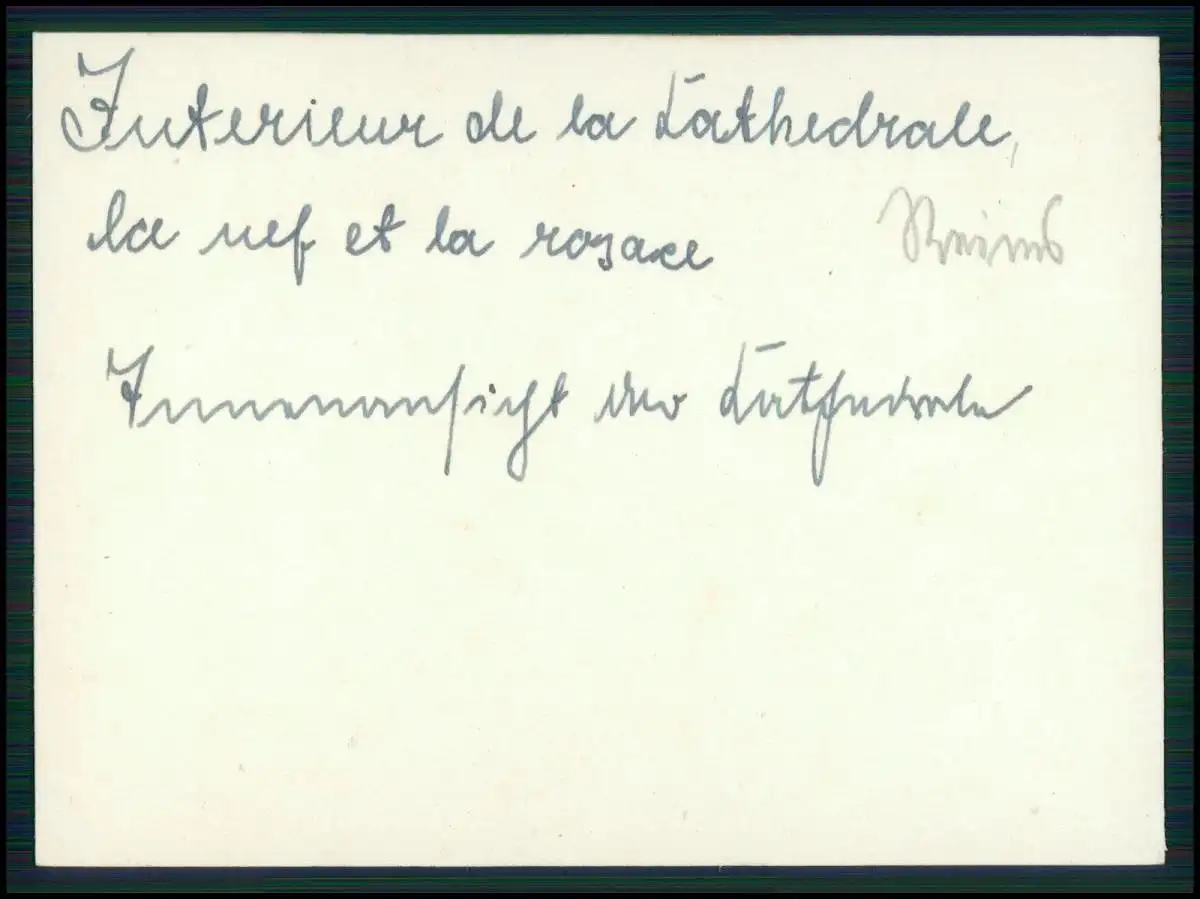 Interieur de la Cathedrale,
la nef et la rosace Reims
Innenansicht der Cathedrale